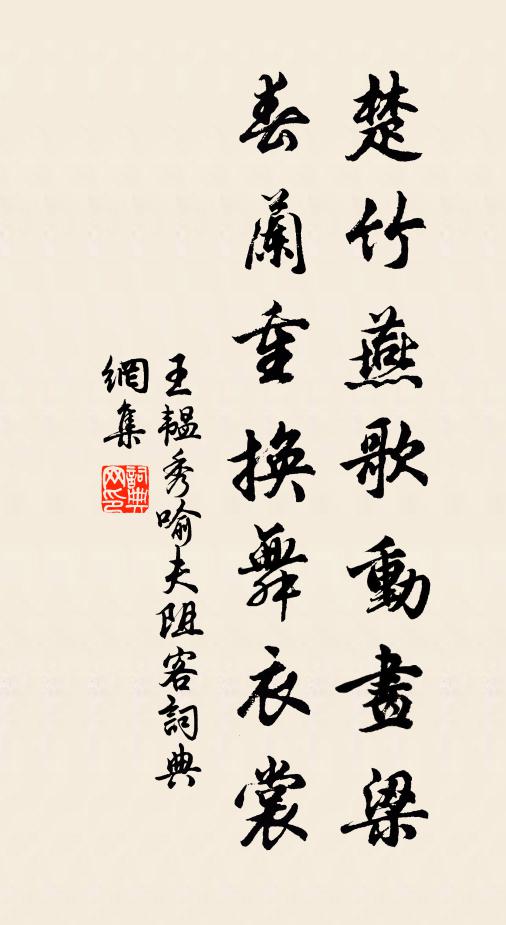 楚竹燕歌動畫梁
春蘭重換舞衣裳
王韞秀喻夫阻客詞典
網集
詞典网印